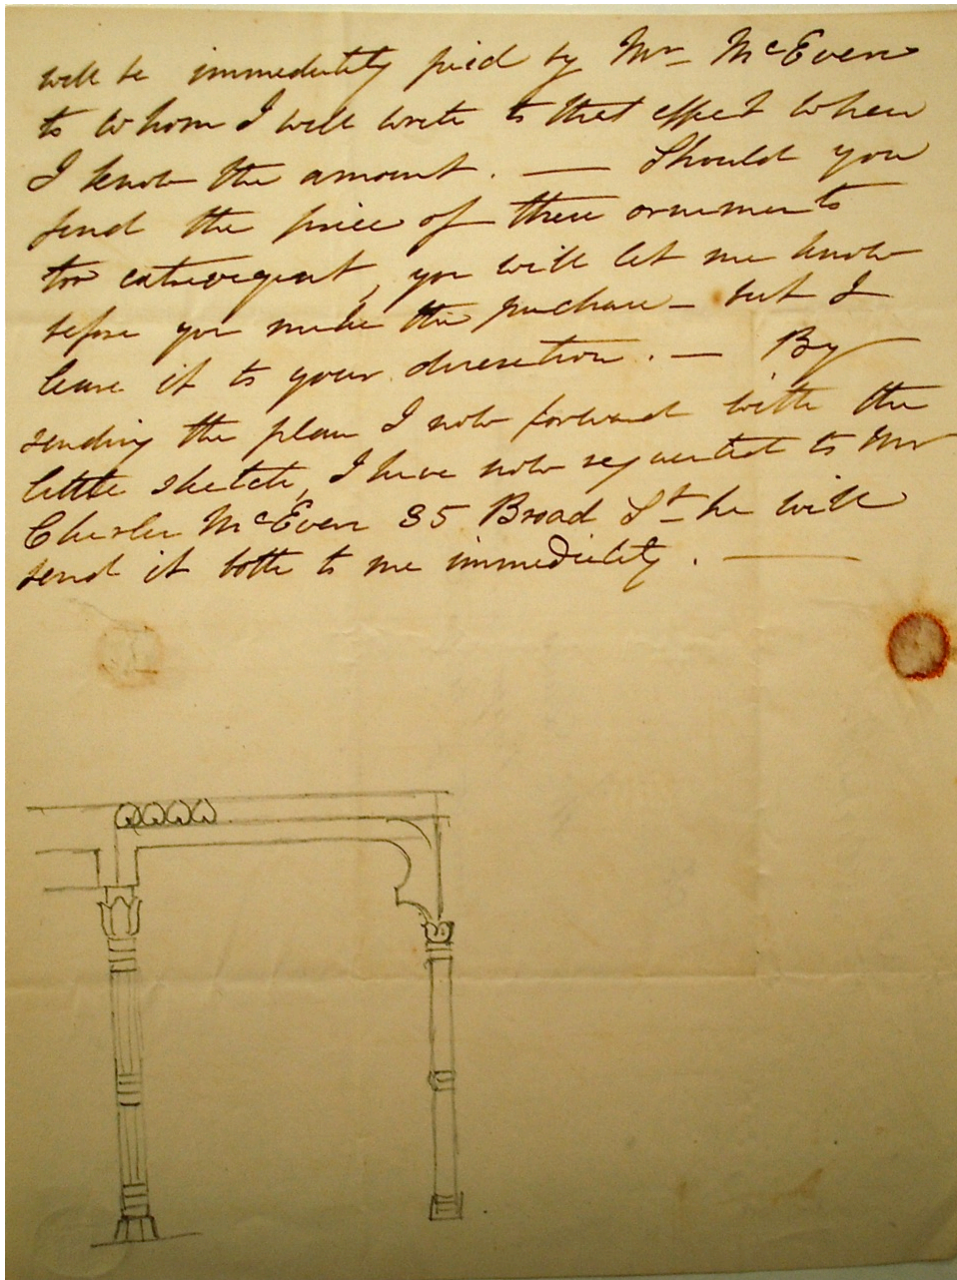 will be immediately paid by Mr McEven
to whom I will write to that effect when
I know the amount. — Should you
find the price of these ornaments
too extravagent, you will let me know
before you make the purchase – but I
leave it to your discretion. — By
sending the plan I now forward with the
little sketch, I have now requested to Mr
Charles McEven 35 Broad St – he will
send it both to me immediately. —